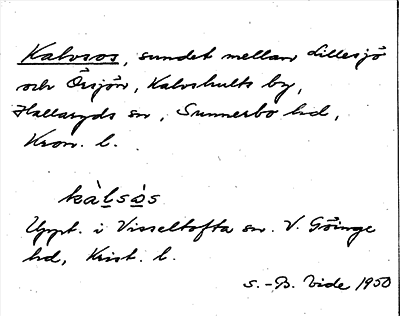 Kalvsos, sundet mellan Lillesjö
och Örsjön, Kalvshults by,
Hallaryds sn, Sunnerbo hd,
Kron. l.
kàlsò̱s
Uppt. i Visseltofta sn. V. Göinge
hd, Krist. l.
S.-B. Vide 1950